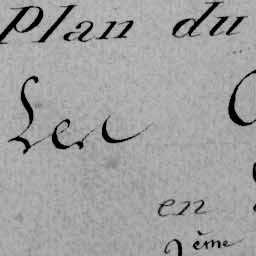 Plan du
Les
en
2ème